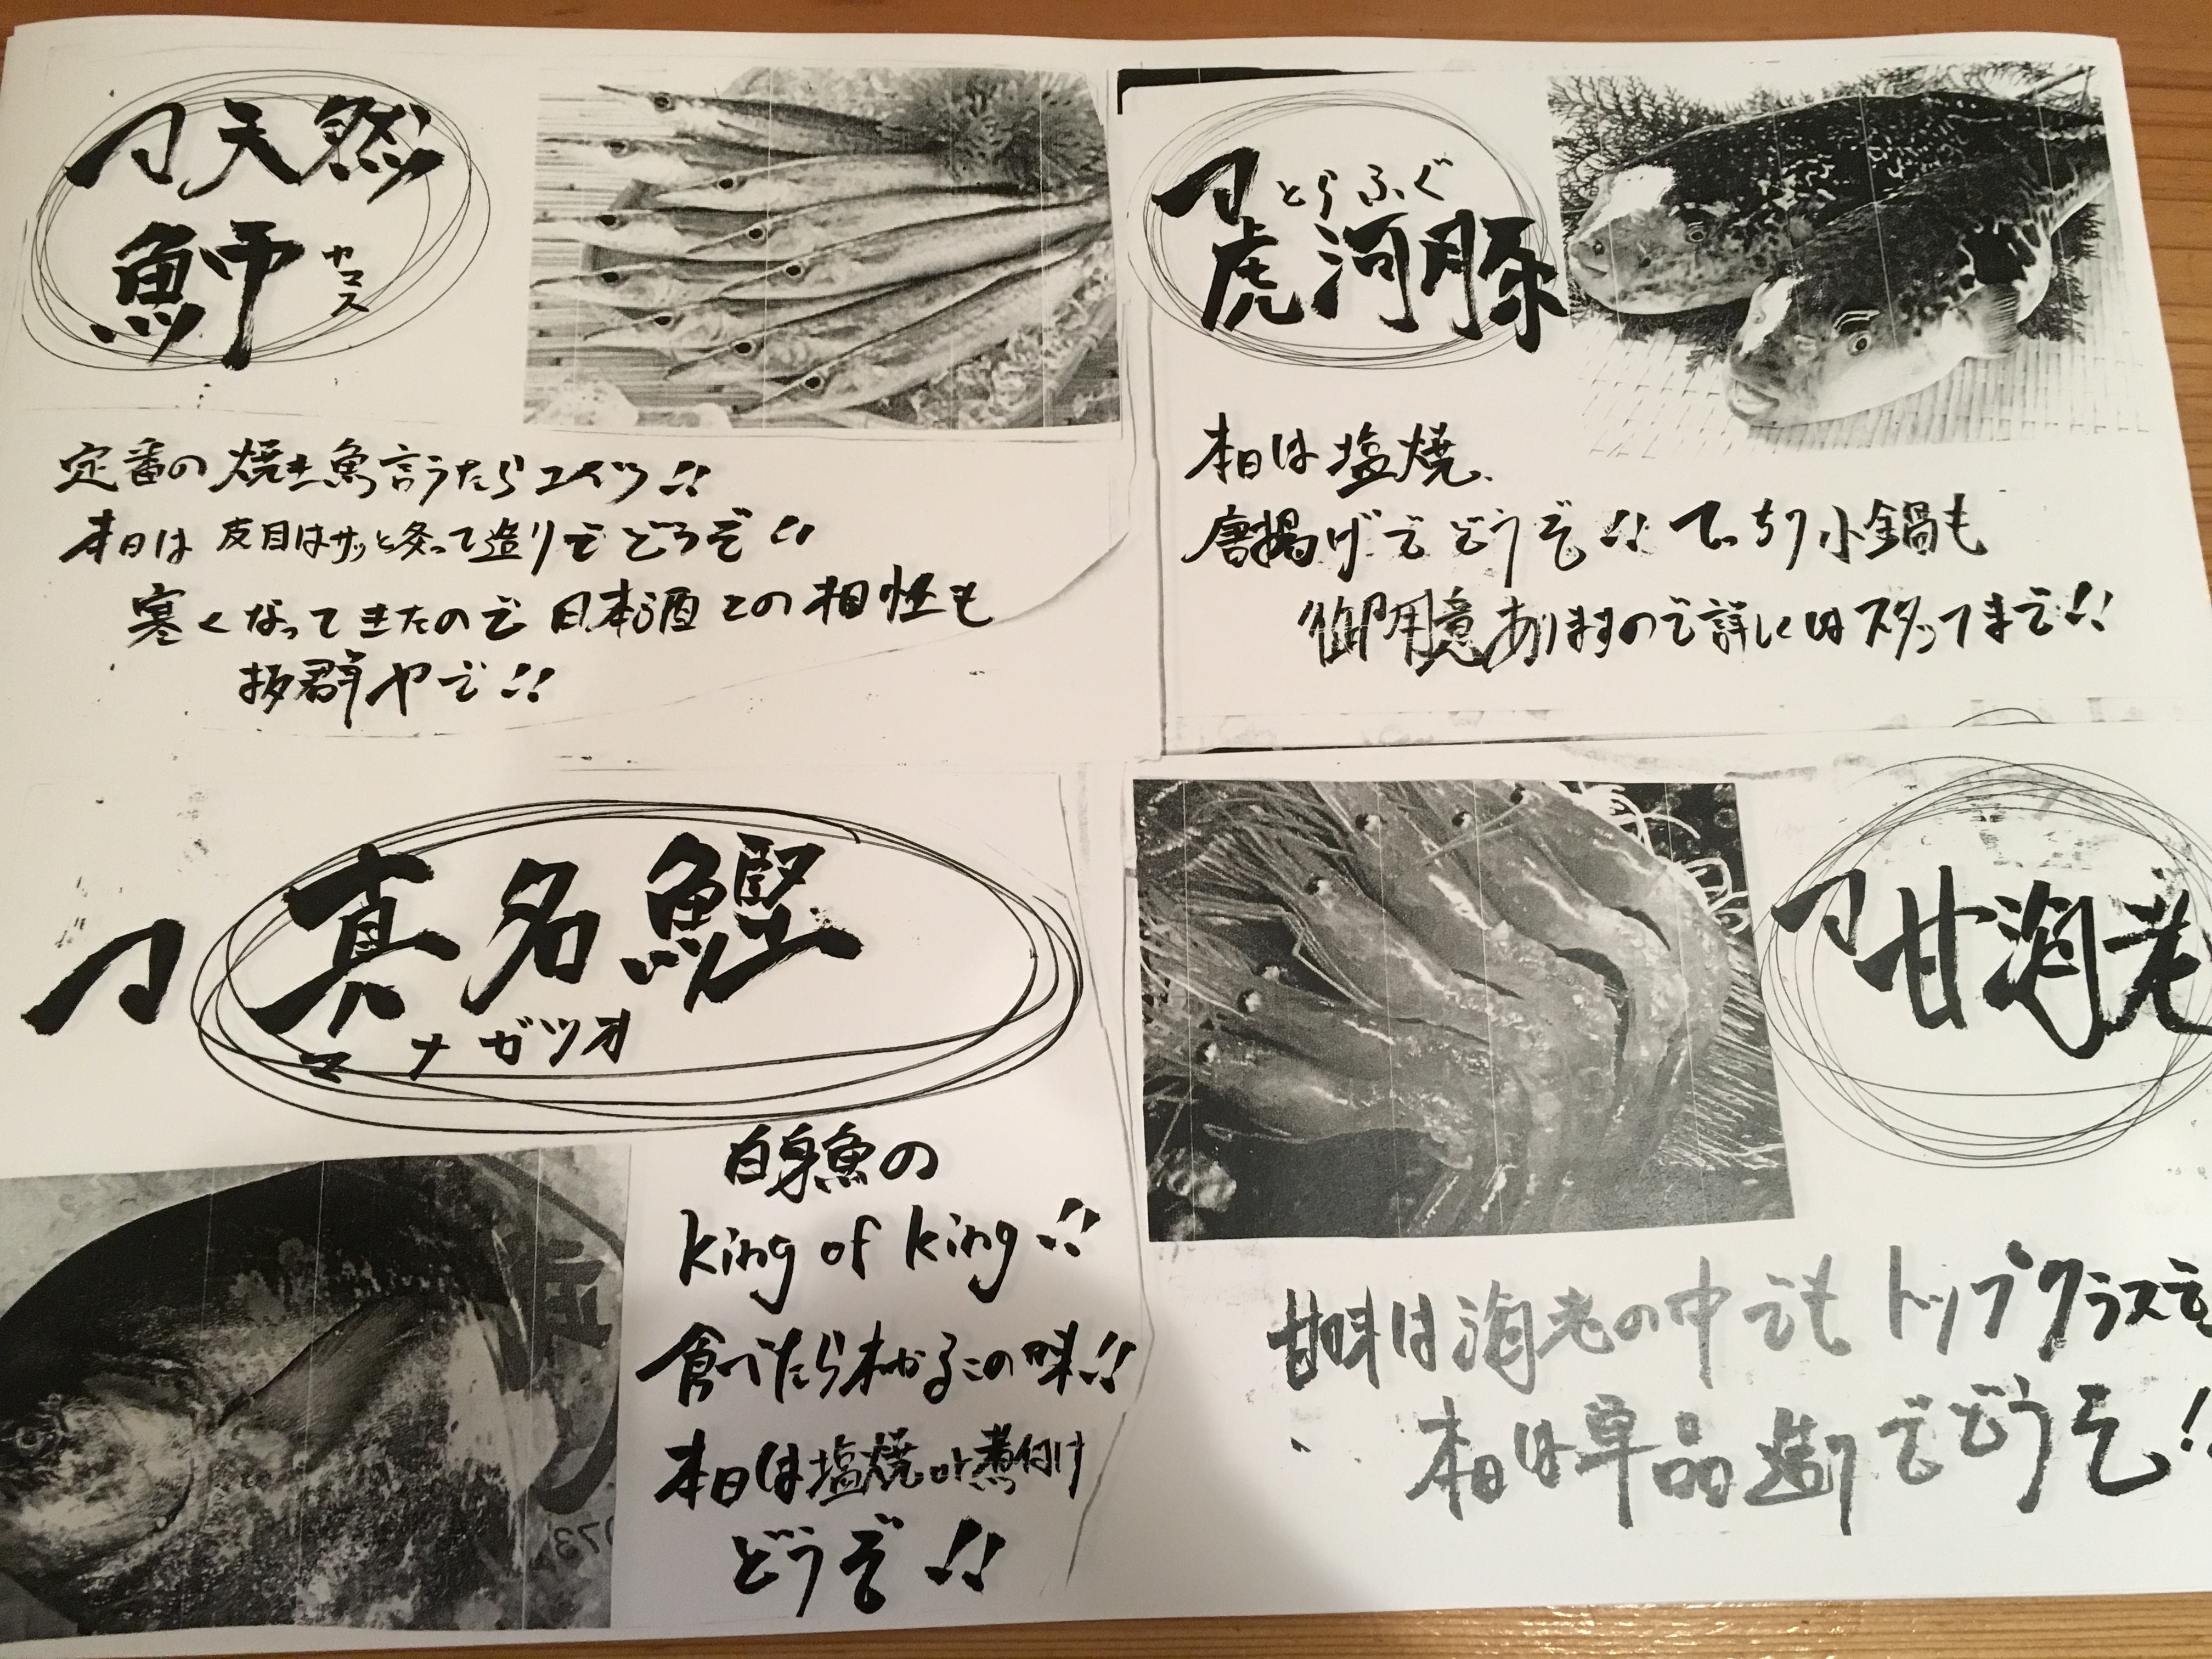 天然
魳 カマス
定番の焼き魚言うたらコイツ!!
本日は皮目はサッと炙って造りでどうぞ!!
寒くなってきたので日本酒との相性も
抜群やで!!
とらふぐ
虎河豚
本日は塩焼、
唐揚げでどうぞ!! てっちり小鍋も
御用意ありますので詳しくはスタッフまで!!
真名鰹
マナガツオ
白身魚の
king of king!!
食べたらわかるこの味!!
本日は塩焼or煮付け
どうぞ!!
甘海老
甘味は海老の中でもトップクラス
本日は単品造りでどうぞ!